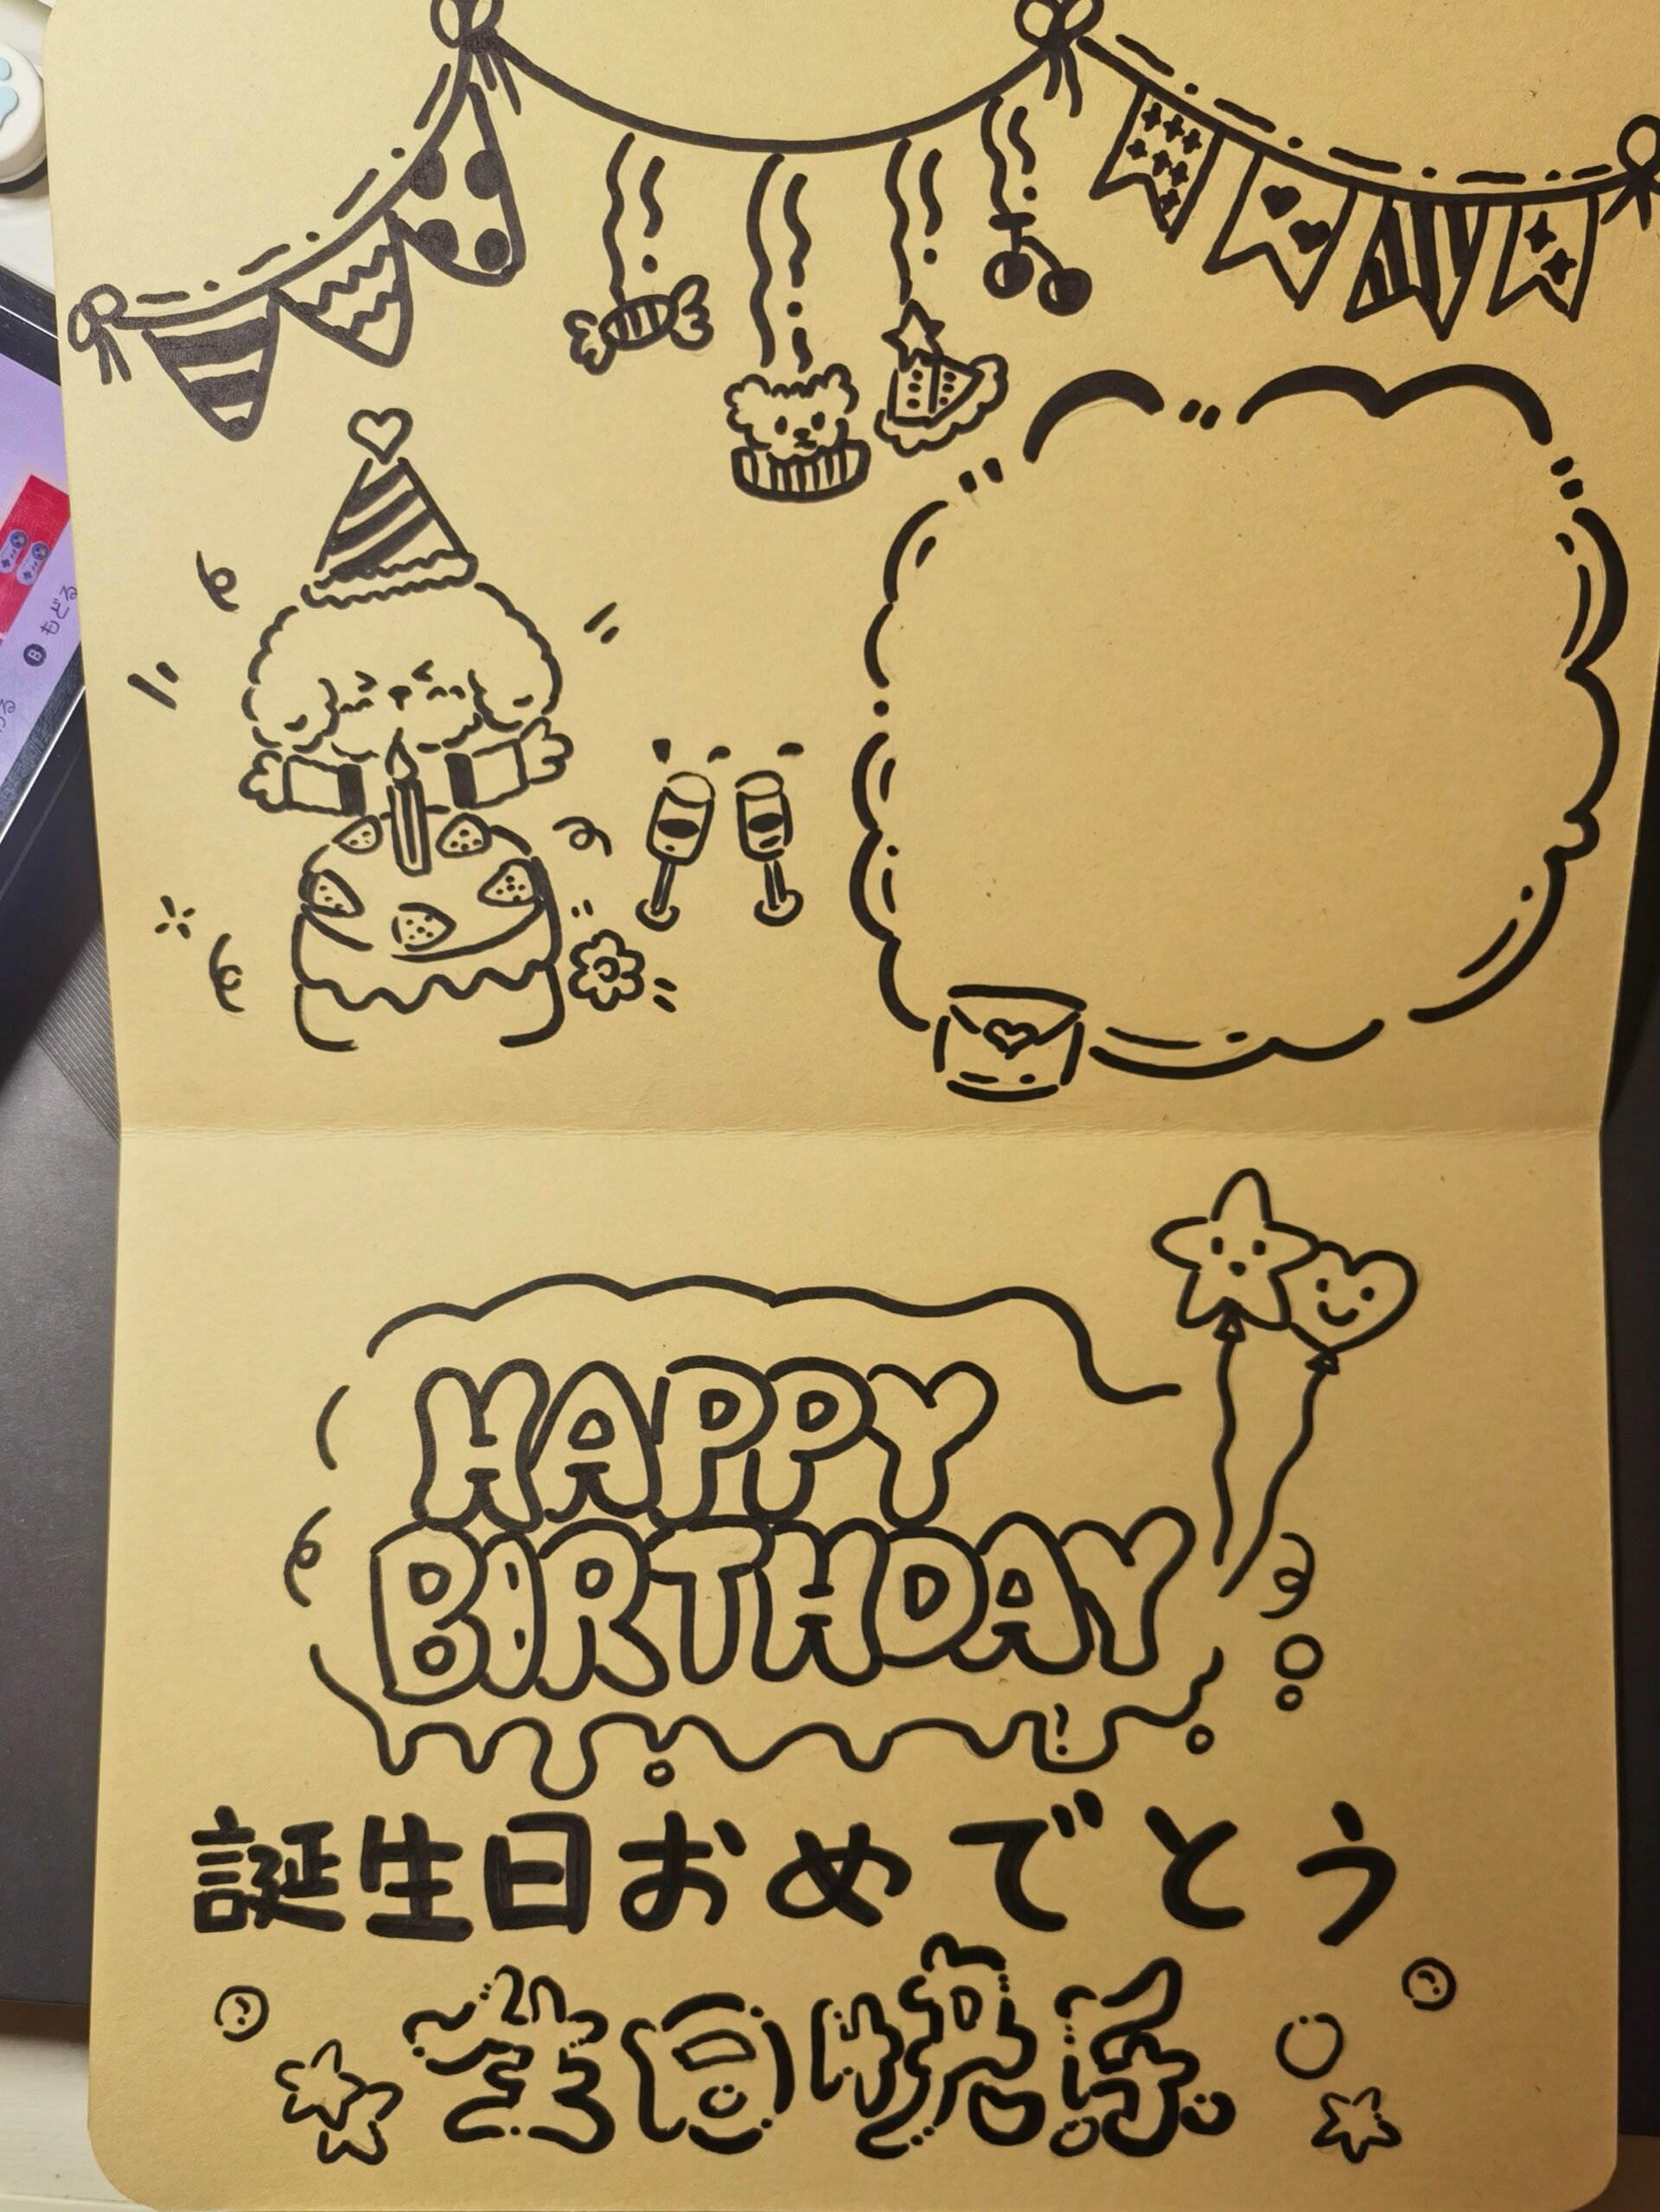 B もどる
HAPPY
BIRTHDAY
誕生日おめでとう
生日快乐